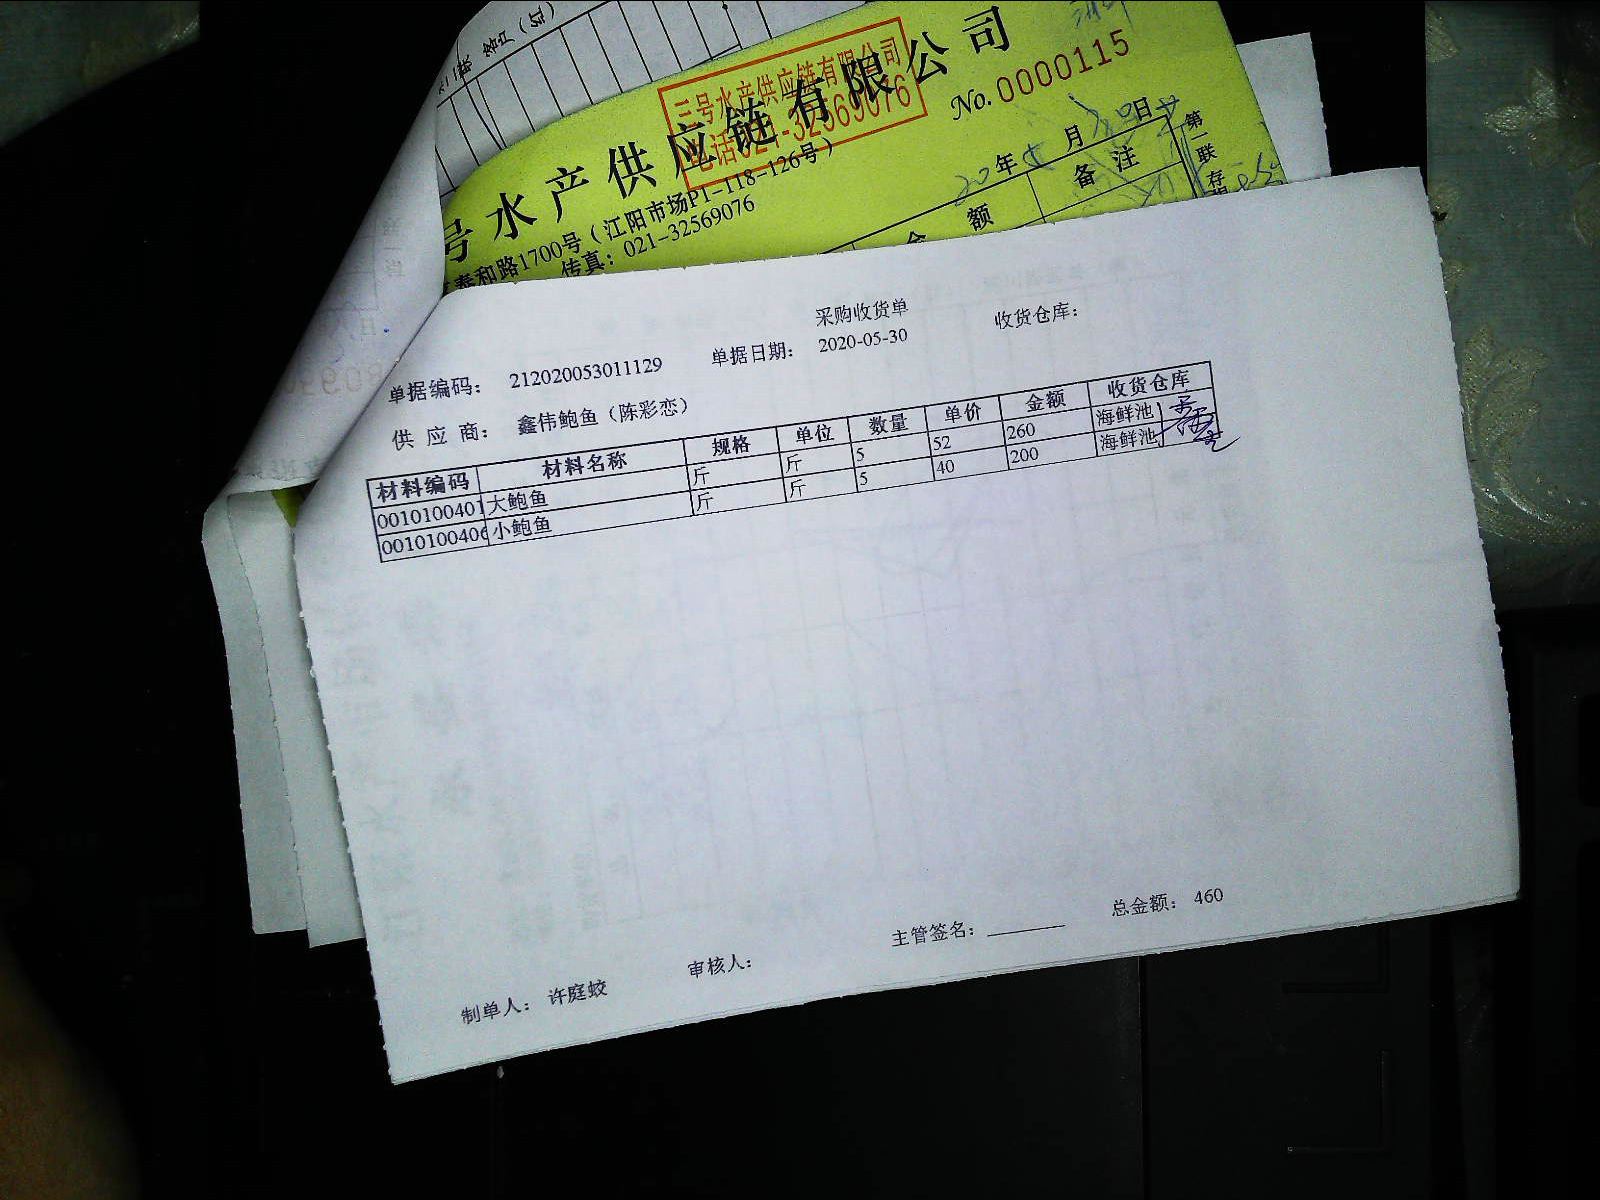 三号水产供应链有限公司
号水产供应链有限公司
No. 0000115
泰和路1700号（江阳市场P1-118-126号）
传真：021-32569076
20年 月 30日
备注
额
第一联 存
采购收货单
单据编码： 212020053011129 单据日期： 2020-05-30 收货仓库：
供应商： 鑫伟鲍鱼（陈彩恋）
材料编码 材料名称 规格 单位 数量 单价 金额 收货仓库
0010100401 大鲍鱼 斤 斤 5 52 260 海鲜池
0010100406 小鲍鱼 斤 斤 5 40 200 海鲜池
制单人： 许庭蛟 审核人： 主管签名： 总金额： 460